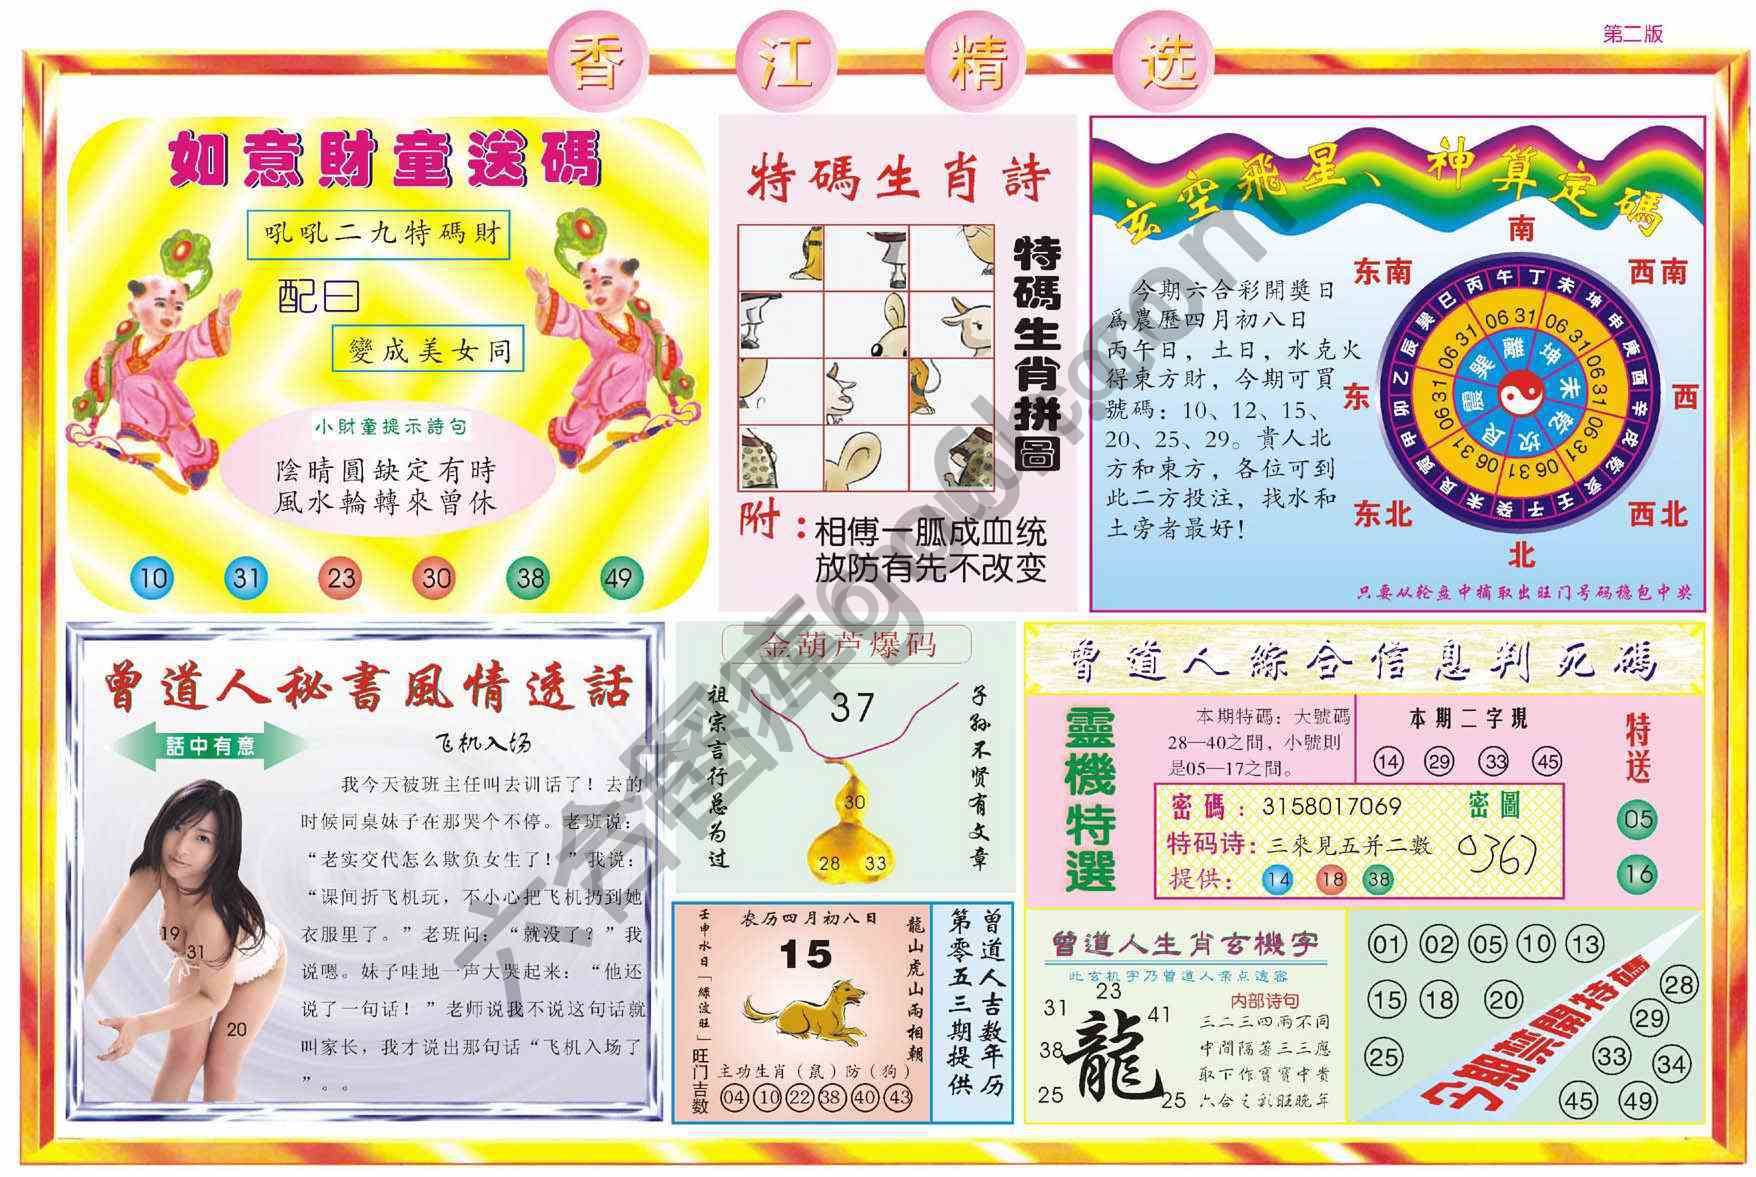 香江精选
第二版
如意財童送碼
吼吼二九特碼財
配曰
變成美女同
小財童提示詩句
陰晴圓缺定有時
風水輪轉來曾休
10 31 23 30 38 49
特碼生肖詩
特碼生肖拼圖
附：
相傅一胍成血统
放防有先不改变
玄空飛星、神算定碼
今期六合彩開獎日
爲農歷四月初八日
丙午日，土日，水克火
得東方財，今期可買
號碼：10、12、15、
20、25、29。貴人北
方和東方，各位可到
此二方投注，找水和
土旁者最好！
南
东南 西南
东 西
东北 西北
北
只要从轮盘中摘取出旺门号码稳包中奖
曾道人秘書風情透話
話中有意
飞机入场
我今天被班主任叫去训话了！去的
时候同桌妹子在那哭个不停。老班说：
“老实交代怎么欺负女生了！”我说：
“课间折飞机玩，不小心把飞机扔到她
衣服里了。”老班问：“就没了？”我
说嗯。妹子哇地一声大哭起来：“他还
说了一句话！”老师说我不说这句话就
叫家长，我才说出那句话“飞机入场了
”。。
19
31
20
金葫芦爆码
祖宗言行总为过
37
30
28 33
子孙不贤有文章
壬申水日「绿波旺」旺门吉数
农历四月初八日
15
龍山虎山兩相朝
主功生肖（鼠）防（狗）
04 10 22 38 40 43
曾道人吉数年历
第零五三期提供
曾道人綜合信息判死碼
靈機特選
本期特碼：大號碼
28—40之間，小號則
是05—17之間。
本期二字現
14 29 33 45
特送
05
16
密碼：3158017069
密圖
特码诗：三來見五并二數
0367
提供：14 18 38
曾道人生肖玄機字
此玄机字乃曾道人亲点透密
23
31 41
38
龍
25 25
内部诗句
三二三四兩不同
中間隔著三三應
取下作寶寶中貴
01 02 05 10 13
15 18 20 28
29
25 33 34
45 49
今期禁開特碼
六合图库